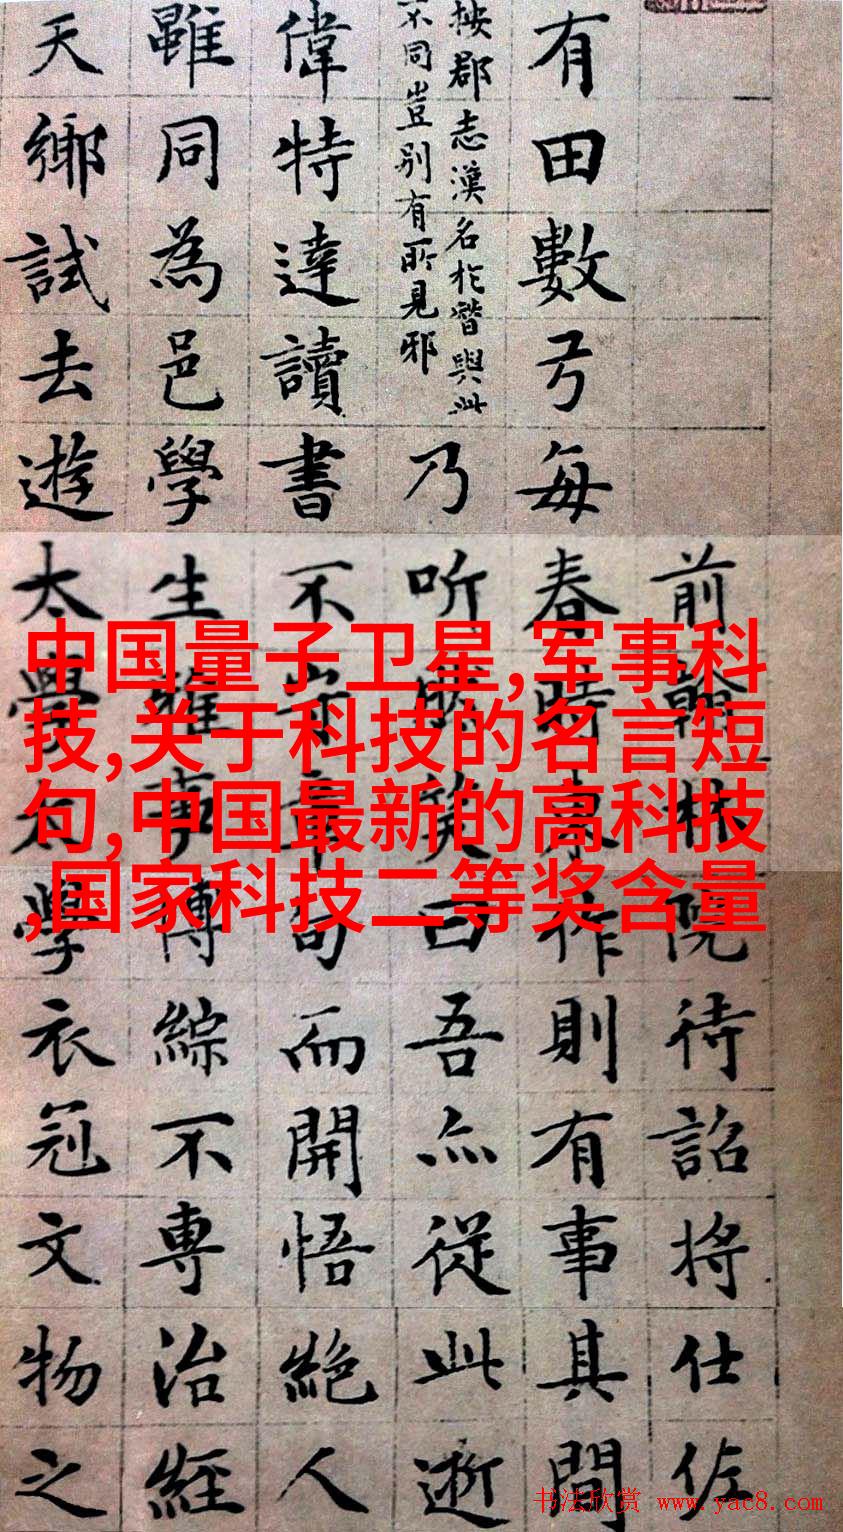 前翰林院待詔將仕佐
有田數弓每春時東作則有事其間
按郡志漢名於朁與此
不同豈別有所見邪
乃听然笑曰吾亦從此逝
偉特達讀書不守章句而開悟絕人
雖同為邑學生雅事博綜不專治經
天鄉試去遊太學太學衣冠文物之
中国量子卫星,军事科
技,关于科技的名言短
句,中国最新的高科技
,国家科技二等奖含量
书法欣赏 www.yac8.com